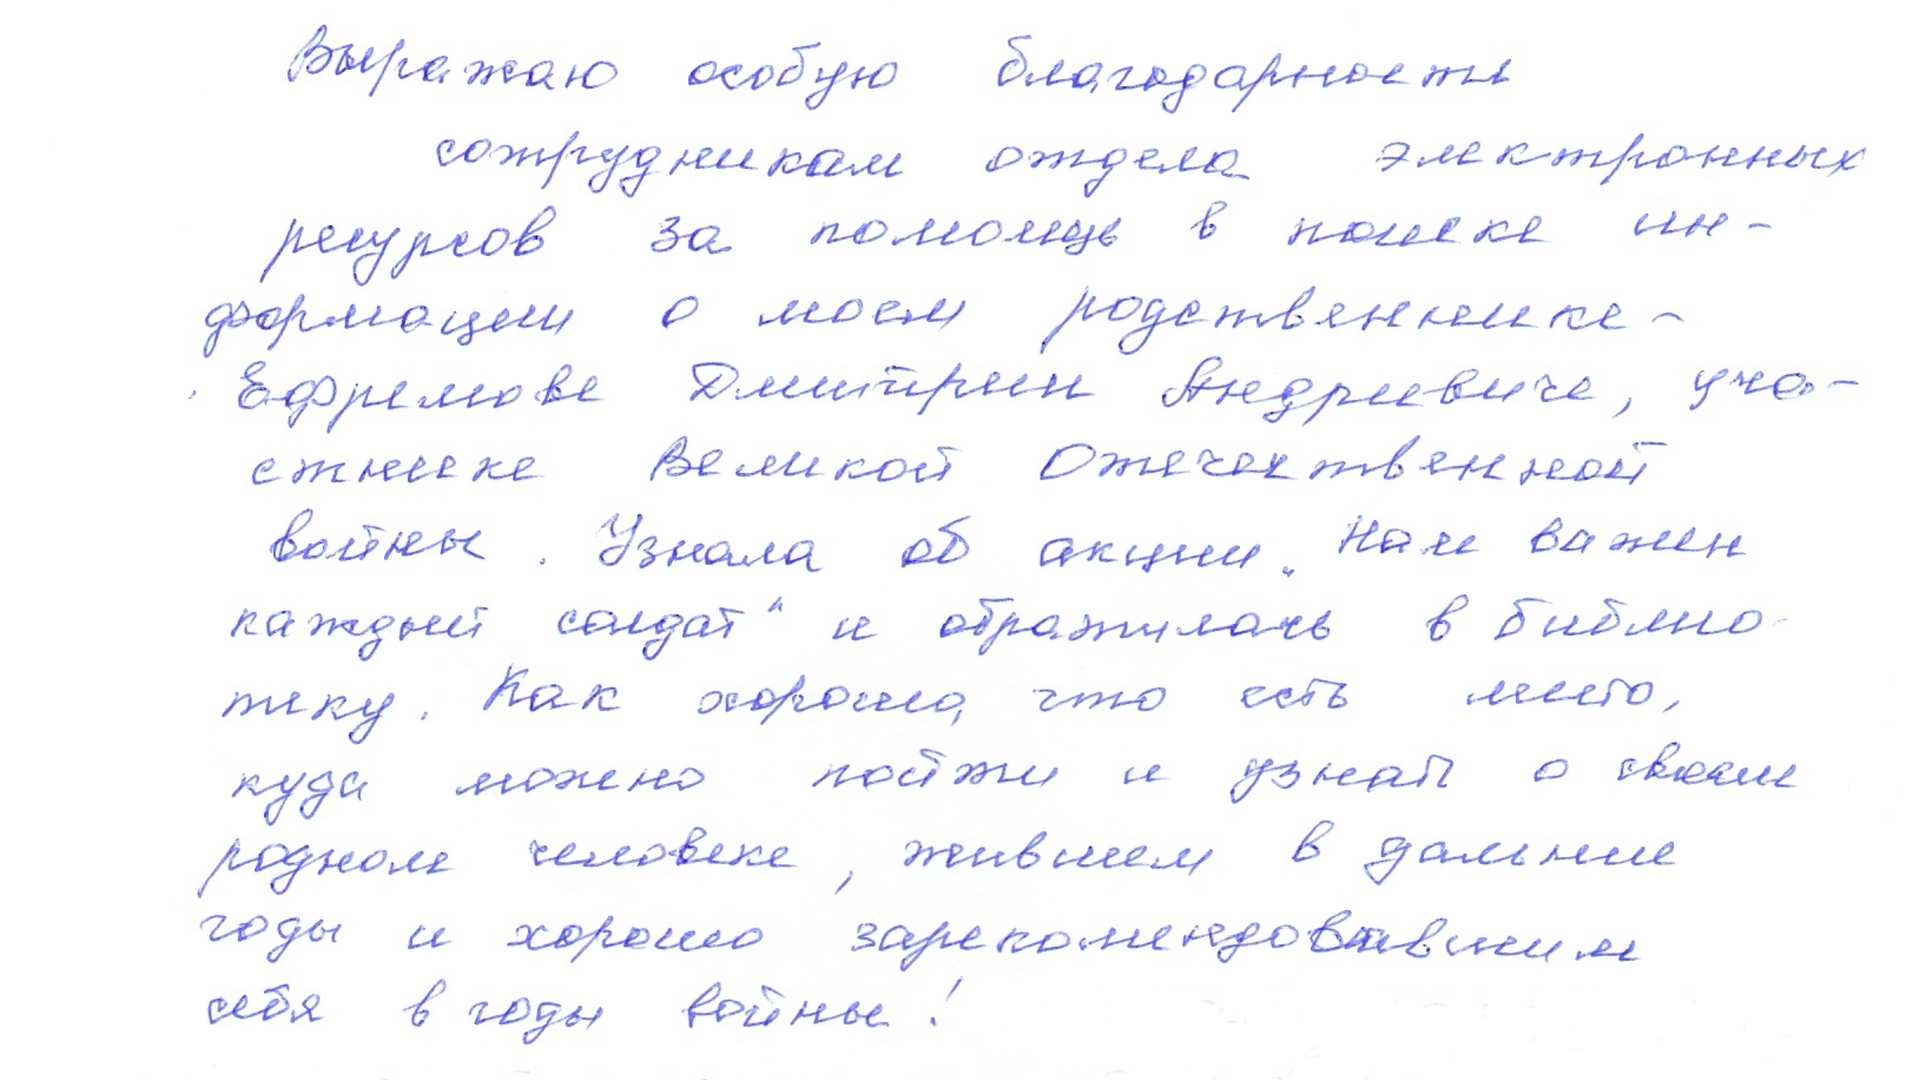 Выражаю особую благодарность
сотрудникам отдела электронных
ресурсов за помощь в поиске ин-
формации о моем родственнике -
Ефремове Дмитрии Андреевиче, уча-
стнике Великой Отечественной
войны. Узнала об акции „Нам важен
каждый солдат“ и обратилась в библио-
теку. Как хорошо, что есть место,
куда можно пойти и узнать о своем
родном человеке, жившем в дальние
годы и хорошо зарекомендовавшим
себя в годы войны!